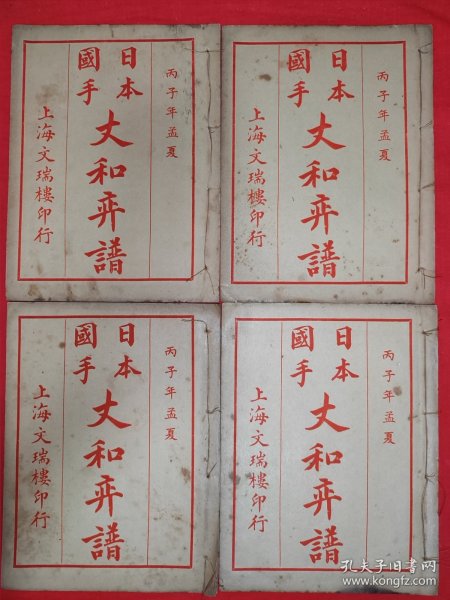 丙子年孟夏
日本
國手
丈和弈譜
上海文瑞樓印行
丙子年孟夏
日本
國手
丈和弈譜
上海文瑞樓印行
丙子年孟夏
日本
國手
丈和弈譜
上海文瑞樓印行
丙子年孟夏
日本
國手
丈和弈譜
上海文瑞樓印行
孔夫子旧书网
www.kongfz.com